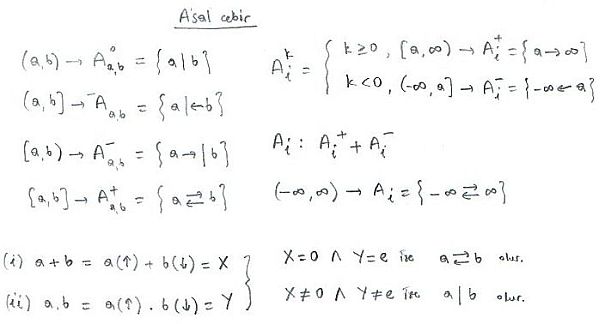 A'sal cebir
(a,b) → A°a,b = { a | b }
(a,b] → ⁻Aa,b = { a | ← b }
[a,b) → A⁻a,b = { a → | b }
[a,b] → A⁺a,b = { a ⇄ b }
Aᵢᵏ = { k ≥ 0 , [a,∞) → Aᵢ⁺ = { a → ∞ }
k < 0 , (-∞,a] → Aᵢ⁻ = { -∞ ← a }
Aᵢ : Aᵢ⁺ + Aᵢ⁻
(-∞,∞) → Aᵢ = { -∞ ⇄ ∞ }
(i) a + b = a(↑) + b(↓) = X
(ii) a . b = a(↑) . b(↓) = Y }
X = 0 ∧ Y = e ise a ⇄ b olur.
X ≠ 0 ∧ Y ≠ e ise a | b olur.